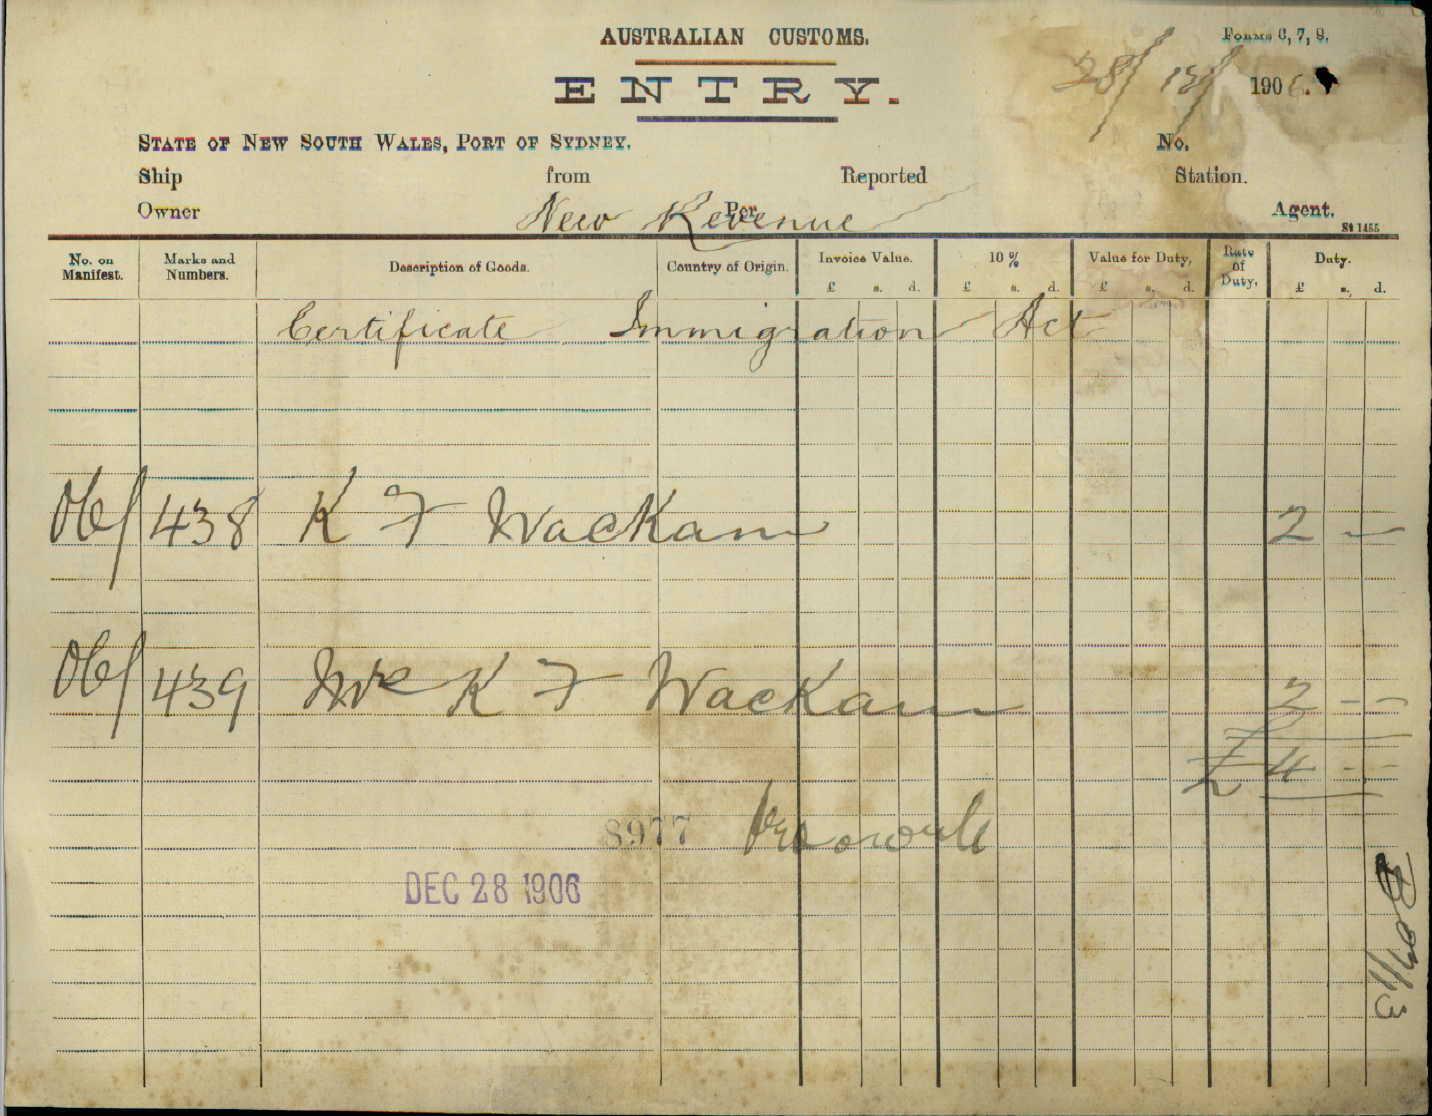 AUSTRALIAN CUSTOMS.
Forms 6, 7, 8.
ENTRY.
28/12/1906.
STATE OF NEW SOUTH WALES, PORT OF SYDNEY.
No.
Ship from Reported Station.
Owner Per Agent.
New Revenue
St 1455
No. on Manifest. Marks and Numbers. Description of Goods. Country of Origin. Invoice Value. 10 % Value for Duty. Rate of Duty. Duty.
£ s. d. £ s. d. £ s. d. £ s. d.
Certificate Immigration Act
06/438 K F Wackam 2 - -
06/439 Mrs K F Wackam 2 - -
£ 4 - -
8977
DEC 28 1906